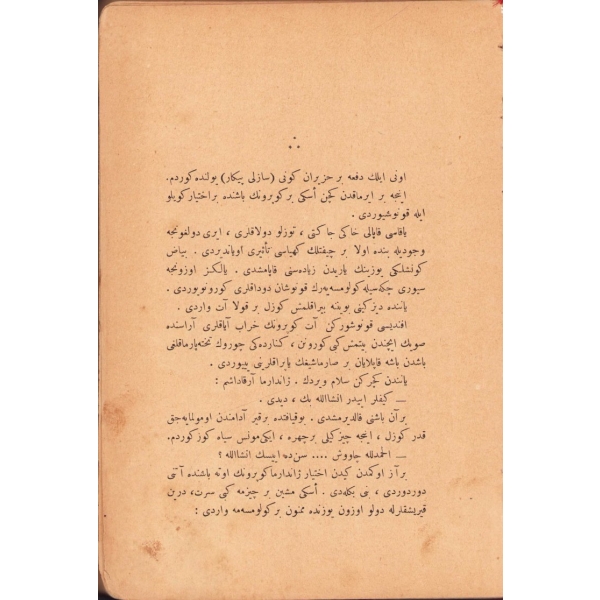 اونی ایلك دفعه بر حزیران كونی (سازلی پیكار) یولنده كوردم.
اینجه بر ایرماقدن كچن أسكی بر كوپرونك باشنده بر اختیار كویلو
ایله قونوشیوردی .
یاقاسی قاپالی خاكی جاكتی ، توزلو دولاقلری ، ایری دولغونجه
وجودیله بنده اولا بر چیفتلك كهیاسی تأثیری اویاندیردی . بیاض
كونشلكی یوزینك یاریدن زیاده‌سنی قاپامشدی . یالكز اوزونجه
سیوری چكه‌سیله كولومسه‌یه‌رك قونوشان دوداقلری كورونویوردی .
یاننده دیزكینی بوینه بیراقلمش كوزل بر قولا آت واردی .
افندیسی قونوشوركن آت كوپرونك خراب آیاقلری آراسنده
صویك ایچندن بیتمش كبی كورونن ، كنارده‌كی چوروك تخته‌پارماقلغی
باشدن باشه قاپلایان بر صارماشیغك یاپراقلرینی ییوردی .
یانندن كچركن سلام ویردك . ژاندارما آرقاداشم :
— كیفلر اییدر انشاالله بك ، دیدی .
بر آن باشنی قالدیرمشدی . بو قیافتده بر قیر آدامندن اومولمایه‌جق
قدر كوزل ، اینجه چیزكیلی بر چهره ، ایكی مونس سیاه كوز كوردم.
— الحمدلله جاووش .... سن‌ده اییسك انشاالله ؟
بر آز اوكمدن كیدن اختیار ژاندارما كوپرونك اوته باشنده آتنی
دوردوردی ، بنی بكله‌دی . أسكی مشین بر چیزمه كبی سرت، درین
قیریشقلرله دولو اوزون یوزنده ممنون بر كولومسه‌مه واردی :